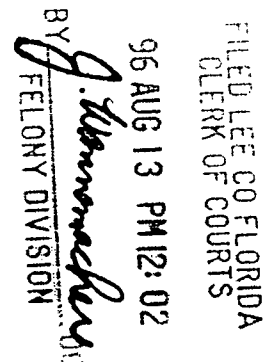 FILED LEE CO FLORIDA
CLERK OF COURTS
96 AUG 13 PM 12: 02
BY
FELONY DIVISION